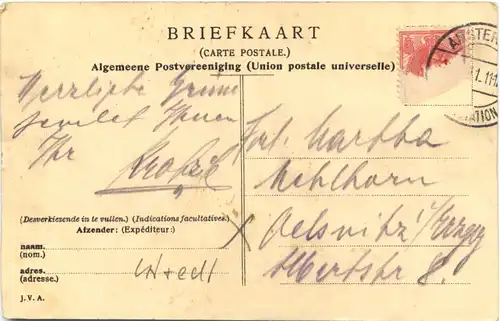 BRIEFKAART
(CARTE POSTALE.)
Algemeene Postvereeniging (Union postale universelle)
AMSTER
1.11-1
STATION
Herzliche Grüsse
sendet Ihnen
Ihr
Frl. Martha
Mehlhorn
Oelsnitz i/Erzg
Albertstr 8.
(Desverkiezende in te vullen.) (Indications facultatives.)
Afzender: (Expéditeur:)
naam.
(nom.)
adres.
(adresse.)
J. V. A.